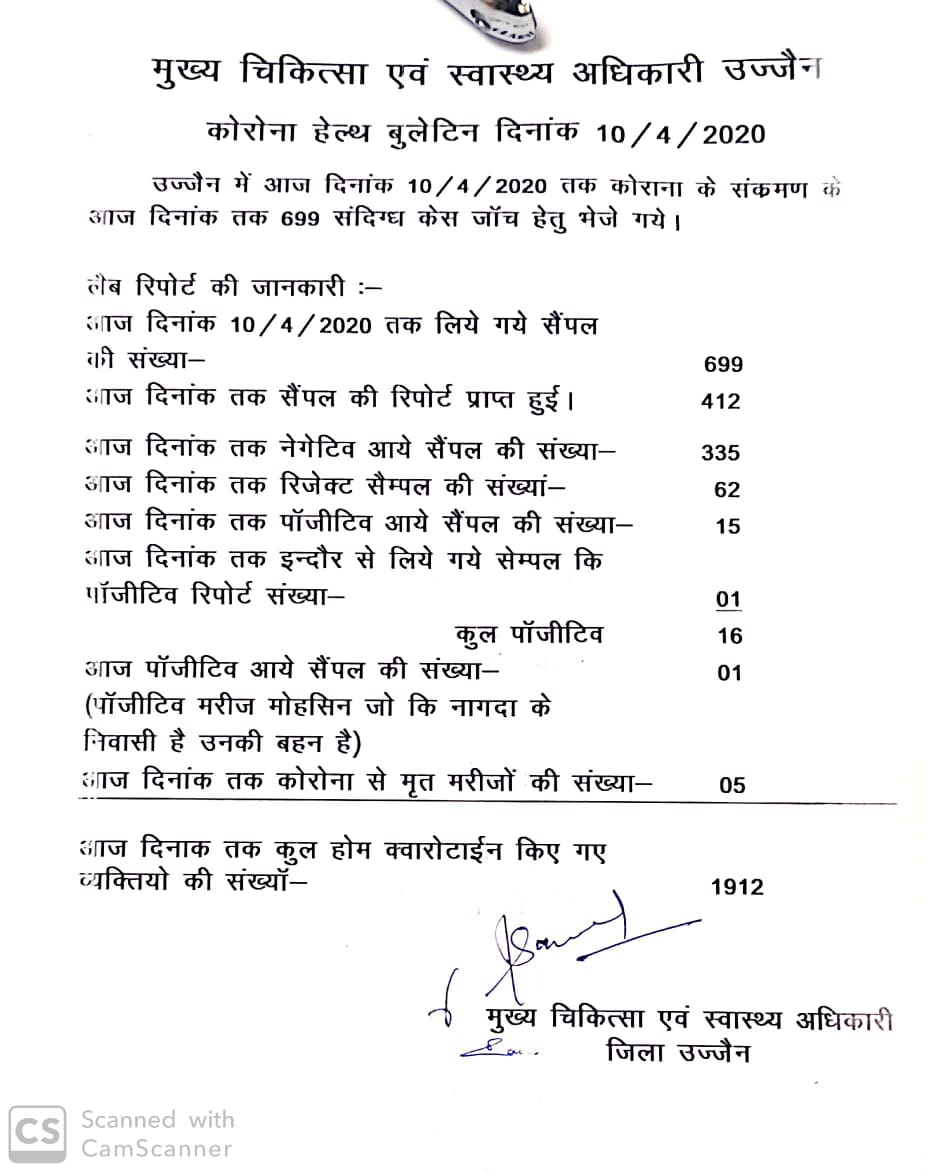 मुख्य चिकित्सा एवं स्वास्थ्य अधिकारी उज्जैन
कोरोना हेल्थ बुलेटिन दिनांक 10/4/2020
उज्जैन में आज दिनांक 10/4/2020 तक कोराना के संकमण के
आज दिनांक तक 699 संदिग्ध केस जॉच हेतु भेजे गये।
लैब रिपोर्ट की जानकारी :–
आज दिनांक 10/4/2020 तक लिये गये सैंपल
की संख्या– 699
आज दिनांक तक सैंपल की रिपोर्ट प्राप्त हुई। 412
आज दिनांक तक नेगेटिव आये सैंपल की संख्या– 335
आज दिनांक तक रिजेक्ट सैम्पल की संख्यां– 62
आज दिनांक तक पॉजीटिव आये सैंपल की संख्या– 15
आज दिनांक तक इन्दौर से लिये गये सेम्पल कि
पॉजीटिव रिपोर्ट संख्या– 01
कुल पॉजीटिव 16
आज पॉजीटिव आये सैंपल की संख्या– 01
(पॉजीटिव मरीज मोहसिन जो कि नागदा के
निवासी है उनकी बहन है)
आज दिनांक तक कोरोना से मृत मरीजों की संख्या– 05
आज दिनाक तक कुल होम क्वारोटाईन किए गए
व्यक्तियो की संख्यॉ– 1912
मुख्य चिकित्सा एवं स्वास्थ्य अधिकारी
जिला उज्जैन
CS Scanned with
CamScanner